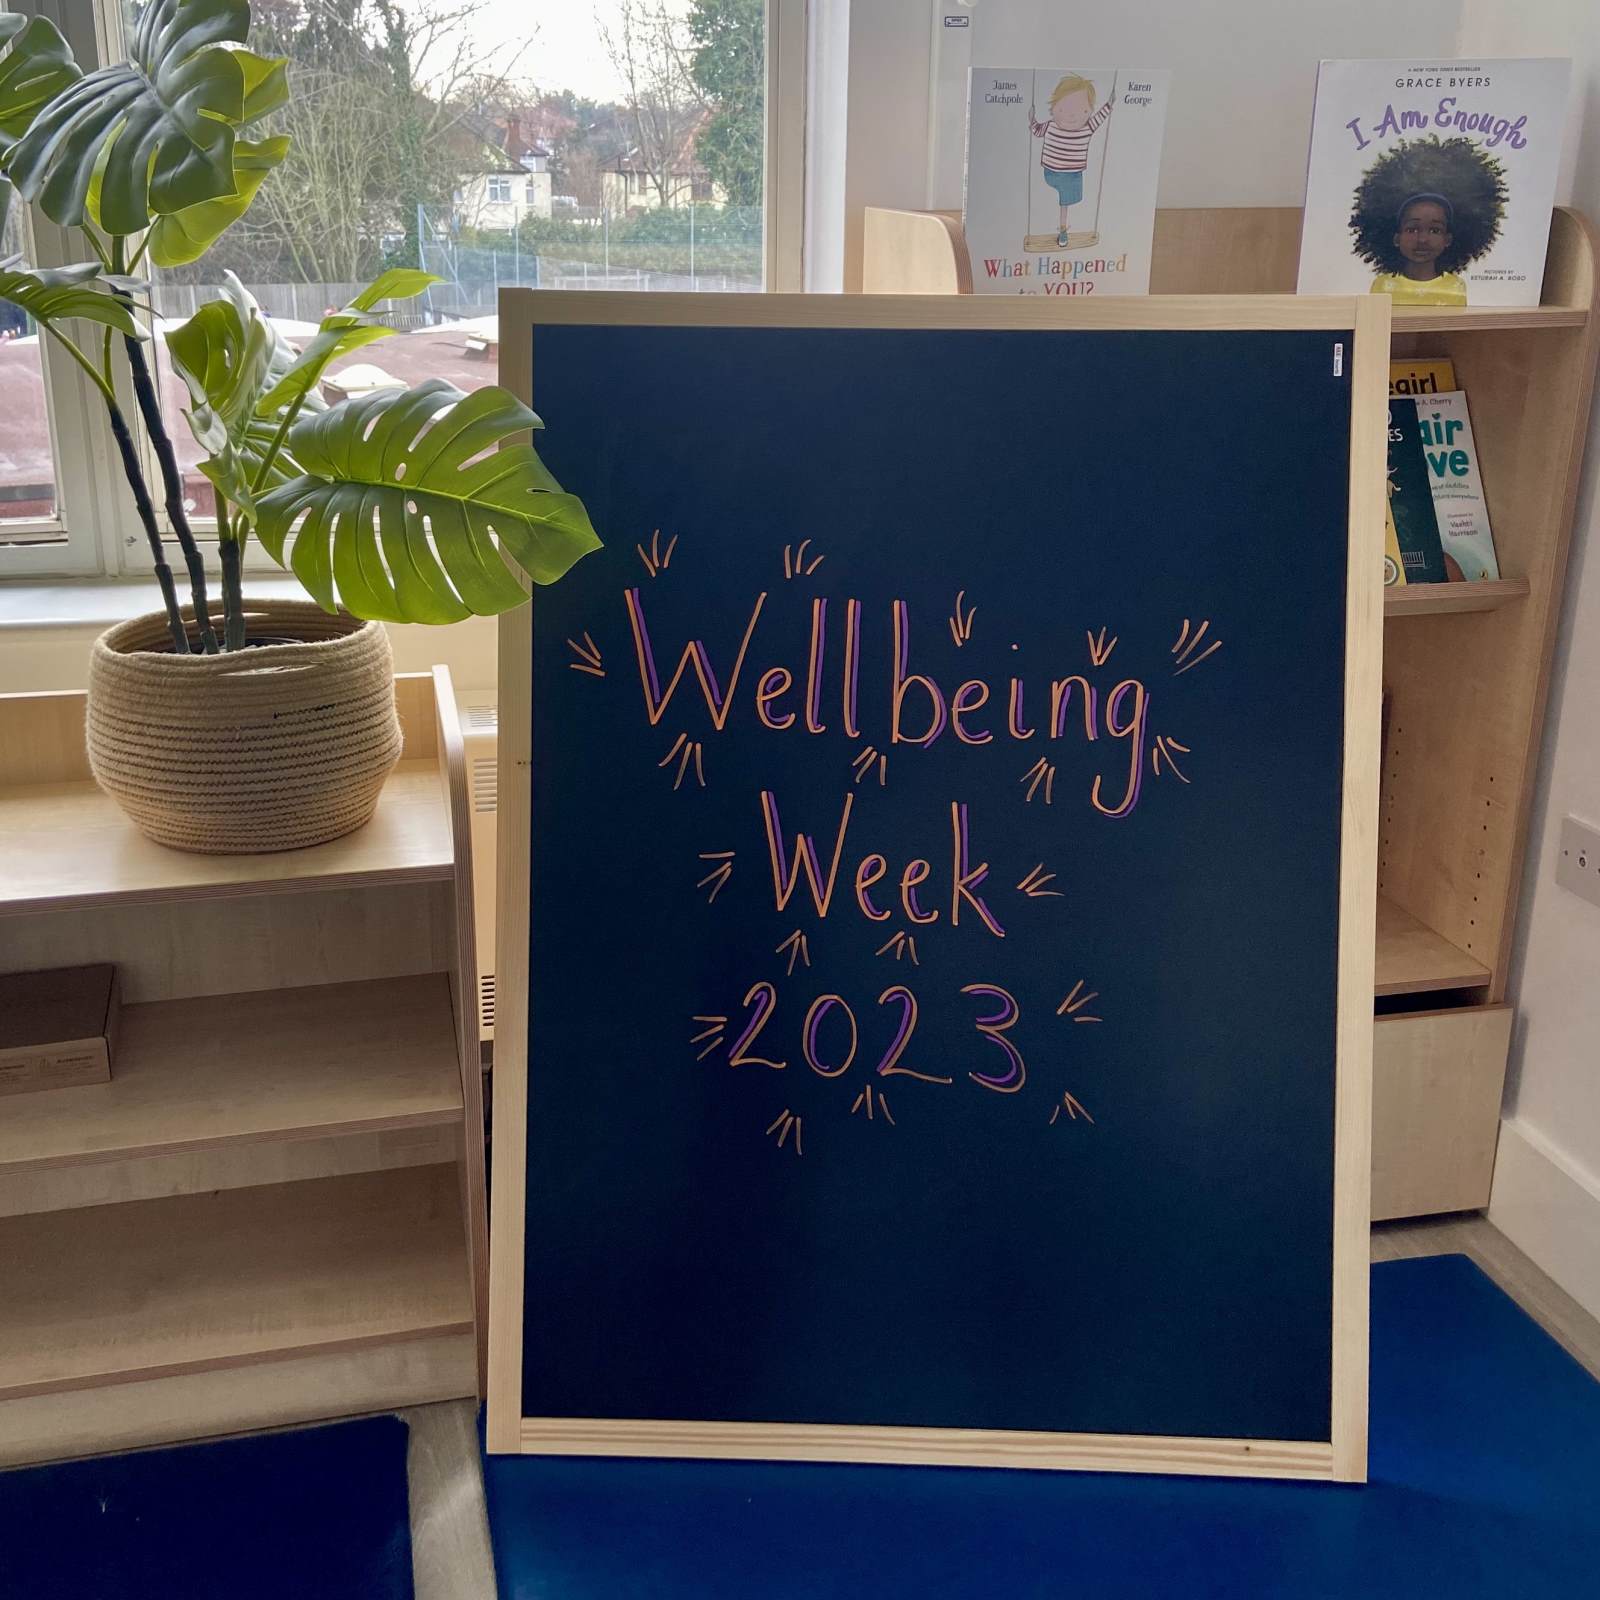 James Catchpole
Karen George
What Happened
to YOU?
A NEW YORK TIMES BESTSELLER
GRACE BYERS
I Am Enough
PICTURES BY
KETURAH A. BOBO
Wellbeing
Week
2023
egirl
A. Cherry
ES
air
ve
Illustrated by
Vashti
Harrison